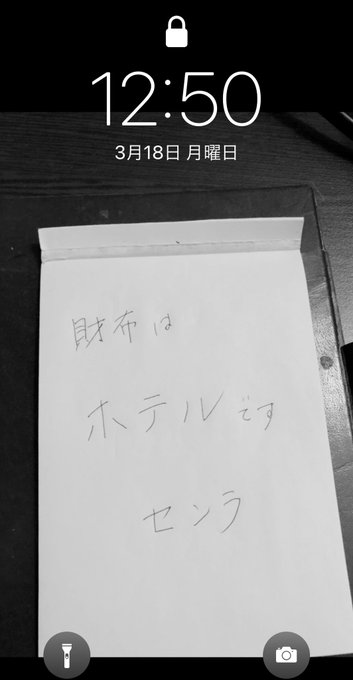 12:50
3月18日 月曜日
財布は
ホテルです
センラ